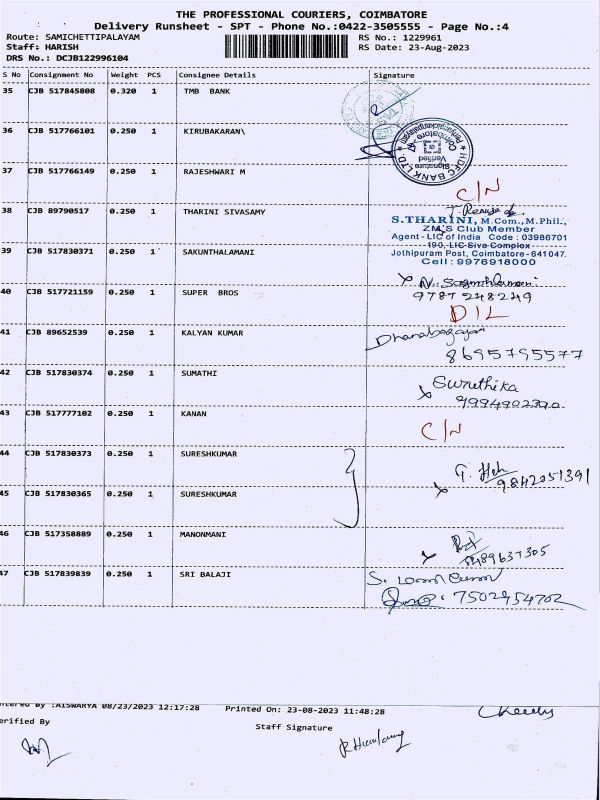 THE PROFESSIONAL COURIERS, COIMBATORE
Delivery Runsheet - SPT - Phone No.:0422-3505555 - Page No.:4
Route: SAMICHETTIPALAYAM RS No.: 1229961
Staff: HARISH RS Date: 23-Aug-2023
DRS No.: DCJB122996104
S No Consignment No Weight PCS Consignee Details Signature
35 CJB 517845808 0.320 1 TMB BANK
36 CJB 517766101 0.250 1 KIRUBAKARAN\
HDFC BANK LTD.
Signature Verified
Coimbatore-47
37 CJB 517766149 0.250 1 RAJESHWARI M
C/N
38 CJB 89790517 0.250 1 THARINI SIVASAMY
S.THARINI, M.Com., M.Phil.,
ZM'S Club Member
Agent - LIC of India Code : 03986701
190, LIC Siva Complex
Jothipuram Post, Coimbatore - 641047.
Cell : 9976918000
39 CJB 517830371 0.250 1 SAKUNTHALAMANI
9787248249
40 CJB 517721159 0.250 1 SUPER BROS
D/L
41 CJB 89652539 0.250 1 KALYAN KUMAR
8695795577
42 CJB 517830374 0.250 1 SUMATHI
Swrethika
43 CJB 517777102 0.250 1 KANAN
C/N
44 CJB 517830373 0.250 1 SURESHKUMAR
9842051391
45 CJB 517830365 0.250 1 SURESHKUMAR
46 CJB 517358889 0.250 1 MANONMANI
47 CJB 517839839 0.250 1 SRI BALAJI
7502954702
ntered By :AISWARYA 08/23/2023 12:17:28 Printed On: 23-08-2023 11:48:28
erified By Staff Signature